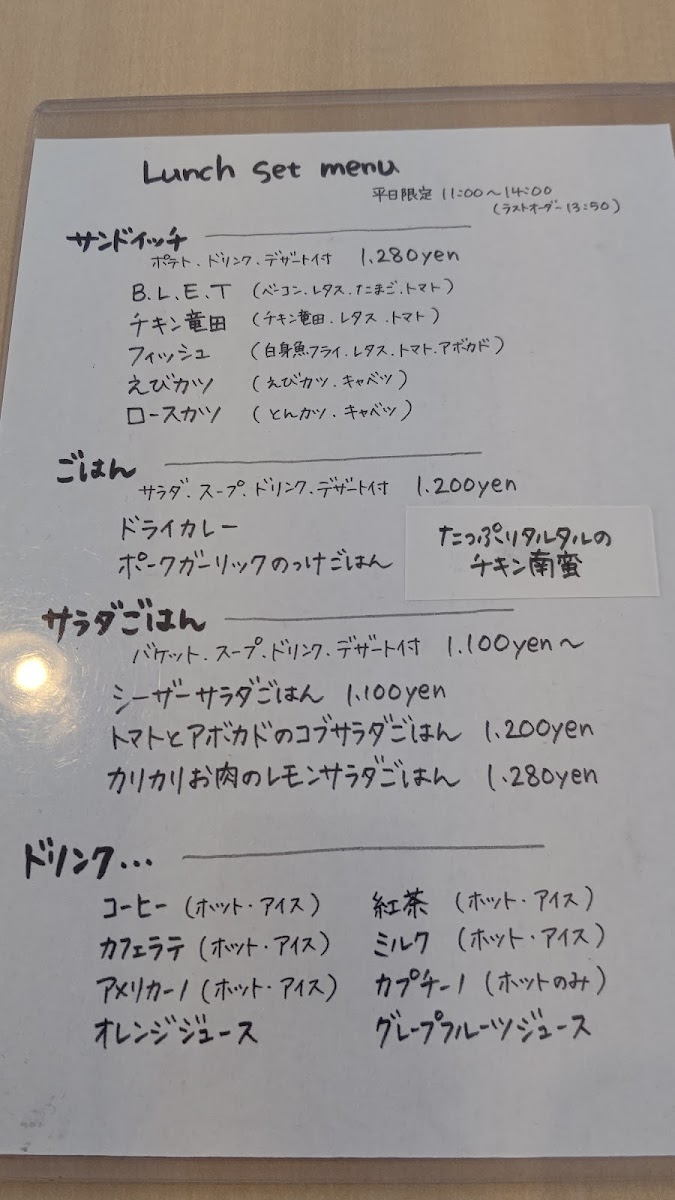 Lunch set menu
平日限定 11:00～14:00
(ラストオーダー 13:50)
サンドイッチ
ポテト.ドリンク.デザート付 1.280yen
B.L.E.T (ベーコン.レタス.たまご.トマト)
チキン竜田 (チキン竜田.レタス.トマト)
フィッシュ (白身魚フライ.レタス.トマト.アボカド)
えびカツ (えびカツ.キャベツ)
ロースカツ (とんカツ.キャベツ)
ごはん
サラダ.スープ.ドリンク.デザート付 1.200yen
ドライカレー
ポークガーリックのっけごはん
たっぷりタルタルの
チキン南蛮
サラダごはん
バケット.スープ.ドリンク.デザート付 1.100yen～
シーザーサラダごはん 1.100yen
トマトとアボカドのコブサラダごはん 1.200yen
カリカリお肉のレモンサラダごはん 1.280yen
ドリンク...
コーヒー (ホット・アイス) 紅茶 (ホット・アイス)
カフェラテ (ホット・アイス) ミルク (ホット・アイス)
アメリカーノ (ホット・アイス) カプチーノ (ホットのみ)
オレンジジュース グレープフルーツジュース